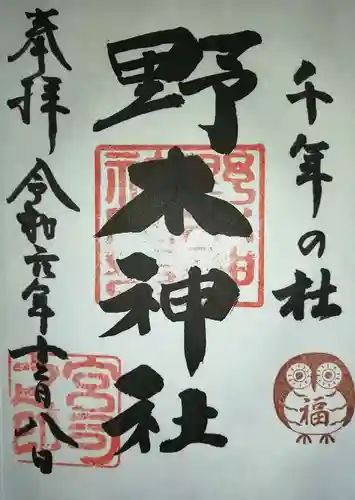 千年の杜
野木神社
奉拝
令和元年十二月八日
福